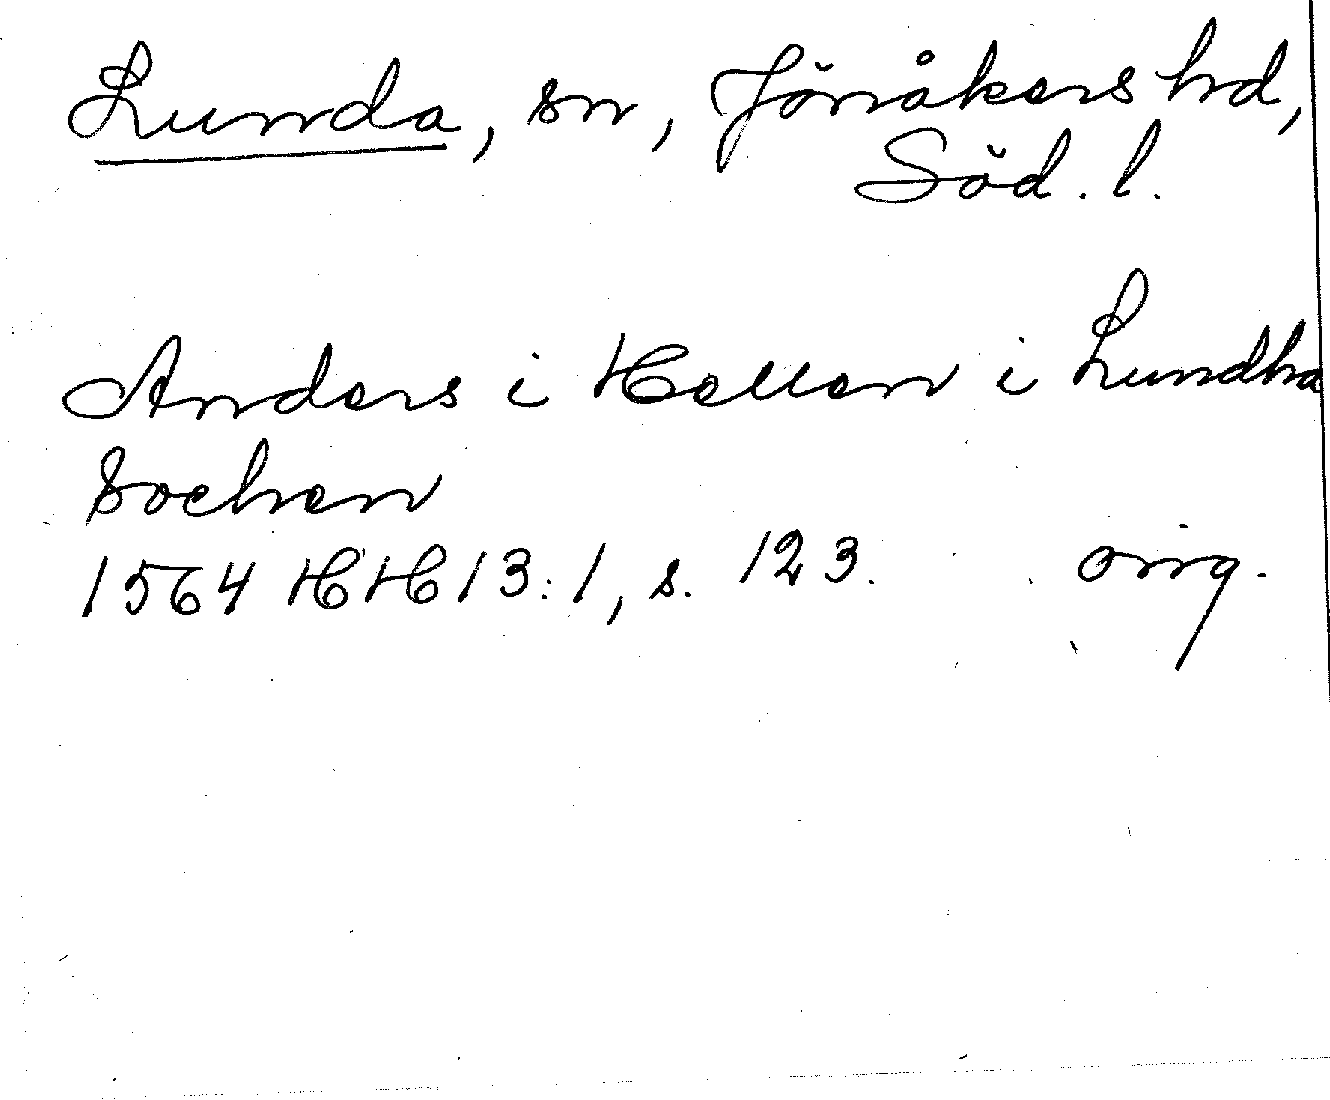 Lunda, sn, Jönåkers hd,
Söd. l.
Anders i Hellen i Lundha
Sochen
1564 HH 13:1, s. 123. orig.